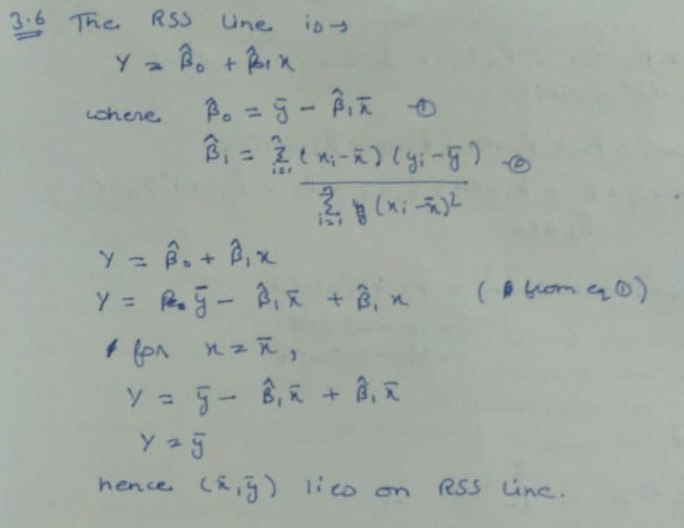 3.6 The RSS Line is →
Y = β̂₀ + β̂₁x
where β̂₀ = ȳ - β̂₁x̄ -①
β̂₁ = Σⁿᵢ₌₁ (xᵢ-x̄)(yᵢ-ȳ) -②
Σⁿᵢ₌₁ (xᵢ-x̄)²
Y = β̂₀ + β̂₁x
Y = ȳ - β̂₁x̄ + β̂₁x (from eq ①)
for x = x̄,
Y = ȳ - β̂₁x̄ + β̂₁x̄
Y = ȳ
hence (x̄,ȳ) lies on RSS Line.